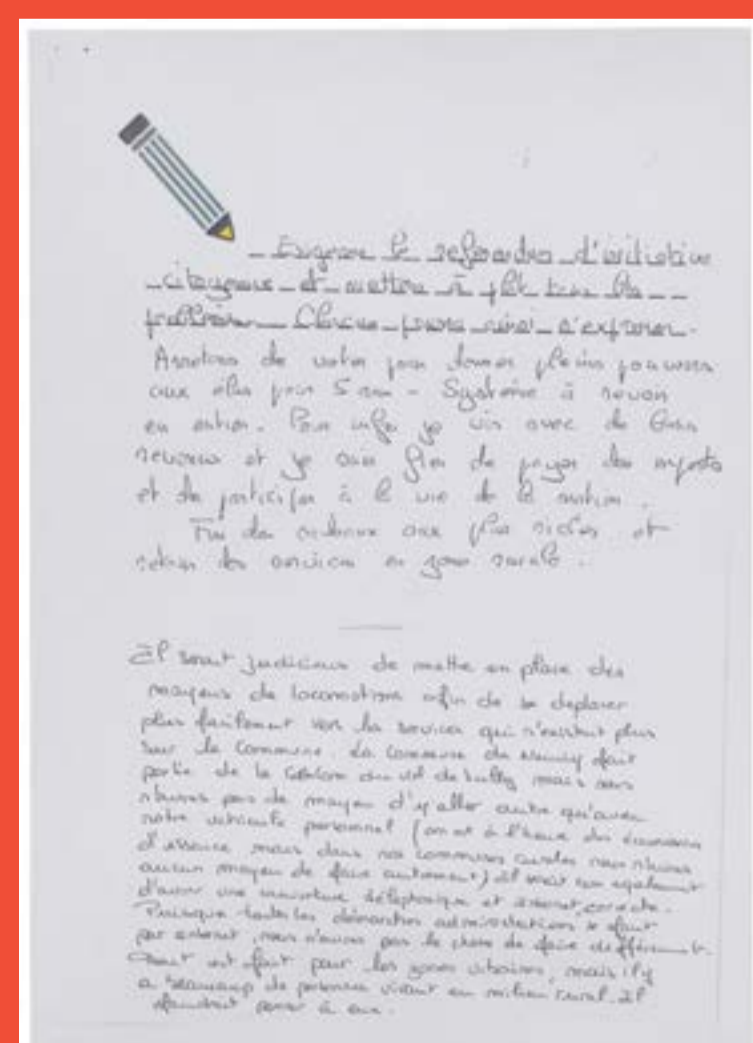 Exigeons le referendum d'initiative
citoyenne et mettre à plat tous les
problèmes Chacun pourra ainsi s'exprimer.
Arretons de voter pour donner pleins pouvoirs
aux élus pour 5 ans - Système à revoir
en entier. Pour info je vis avec de bons
revenus et je suis fier de payer des impots
et de participer à la vie de la nation.
Fin des cadeaux aux plus riches et
retour des services en zone rurale.
Il serait judicieux de mettre en place des
moyens de locomotions afin de se deplacer
plus facilement vers les services qui n'existent plus
sur la Commune. La Commune de fait
partie de la du val de Sully mais nous
n'avons pas de moyen d'y aller autre qu'avec
notre vehicule personnel (on est à l'heure des économies
d'essence mais dans nos communes rurales nous n'avons
aucun moyen de faire autrement) il serait bon egalement
d'avoir une couverture téléphonique et internet correcte.
Puisque toutes les démarches administratives se font
par internet, nous n'avons pas le choix de faire différemment.
Tout est fait pour les zones urbaines, mais il y
a beaucoup de personnes vivant en milieu rural. Il
faudrait penser à eux.